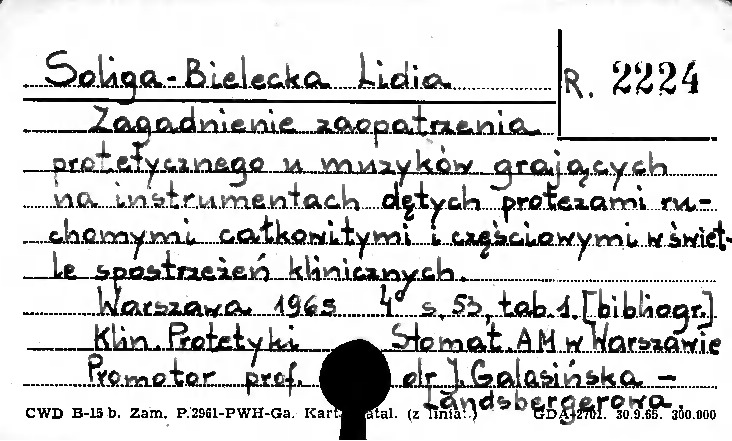 Soliga-Bielecka Lidia R. 2224
Zagadnienie zaopatrzenia
protetycznego u muzyków grających
na instrumentach dętych protezami ru-
chomymi całkowitymi i częściowymi w świet-
le spostrzeżeń klinicznych.
Warszawa 1965 4° s. 53, tab. 1. [bibliogr.]
Klin. Protetyki Stomat. AM w Warszawie
Promotor prof. dr J. Galasińska -
Landsbergerowa.
CWD B-15 b. Zam. P.2961-PWH-Ga. Kart. (z linia.) GDA-2701. 30.9.65. 300.000